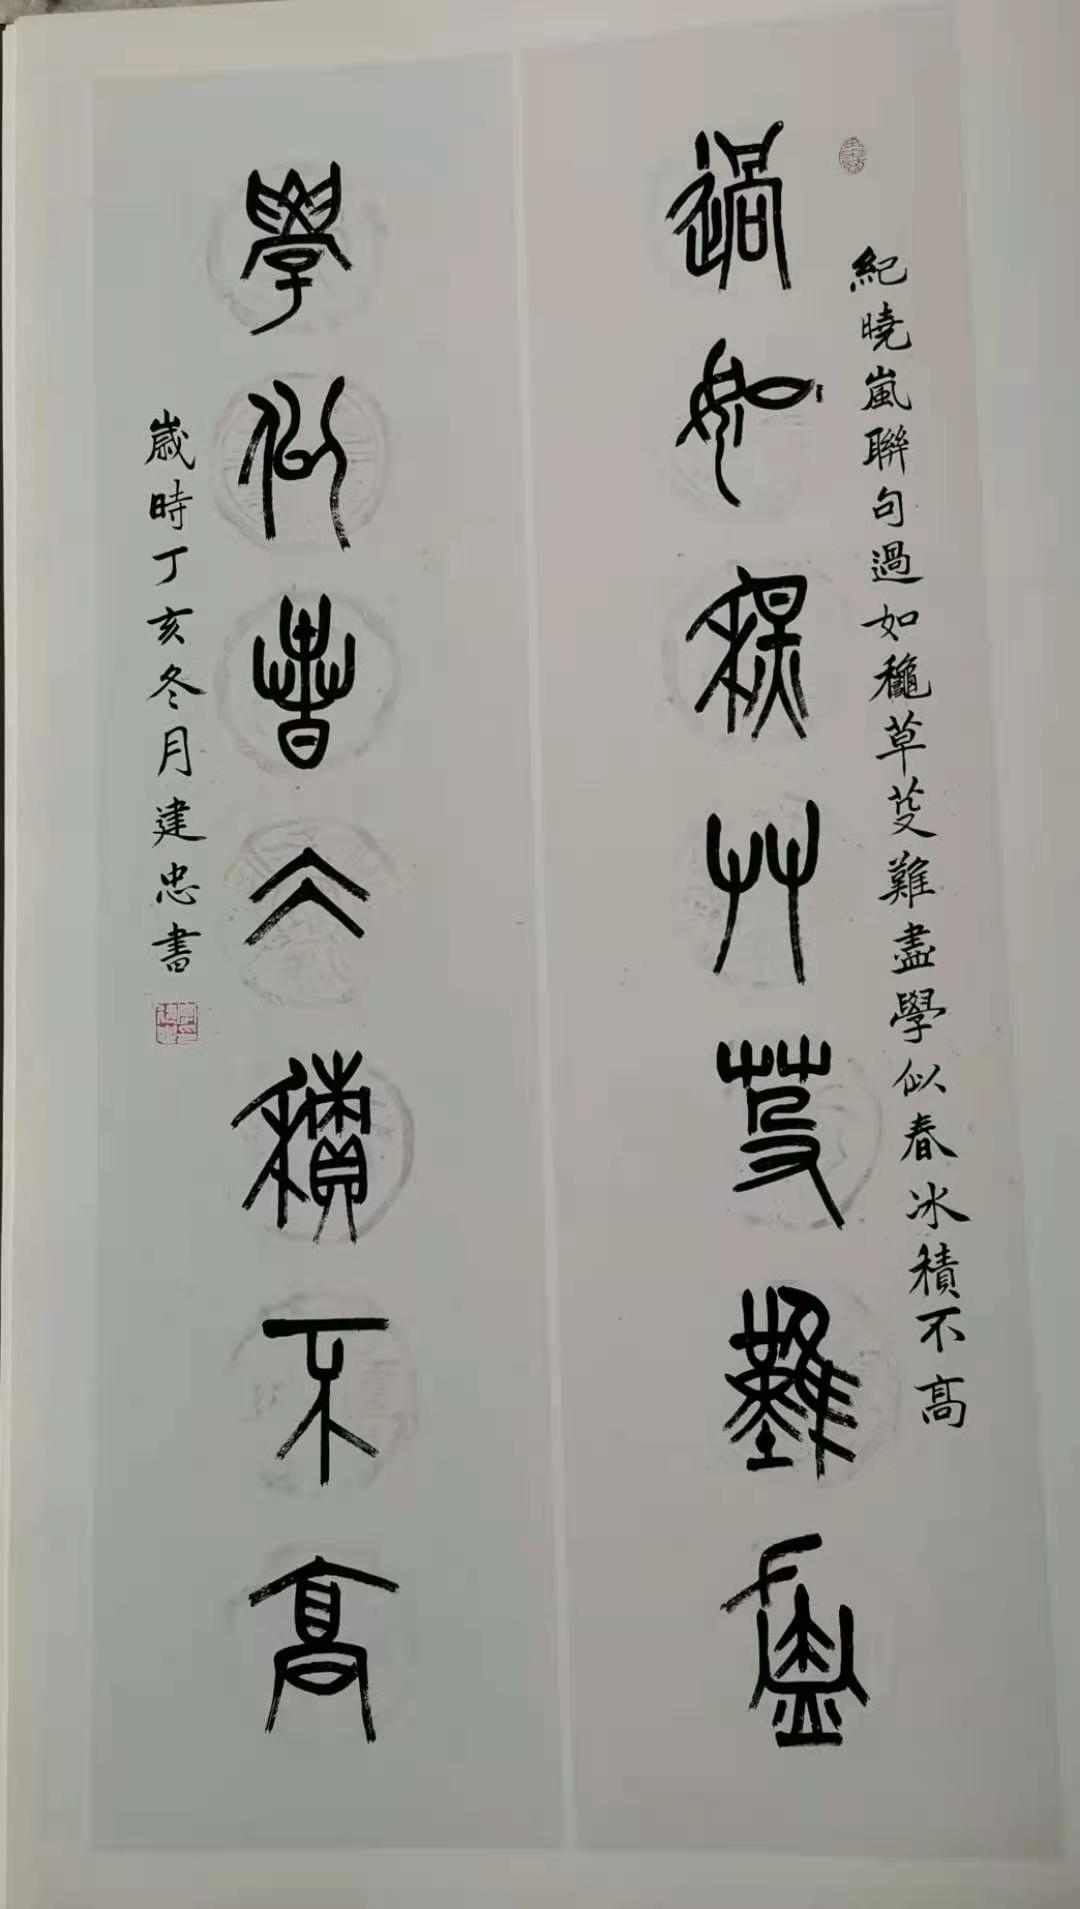 紀曉嵐聯句過如穐草芟難盡學似春冰積不高
過如穐艸芟難盡
學似春仌積不高
歲時丁亥冬月建忠書